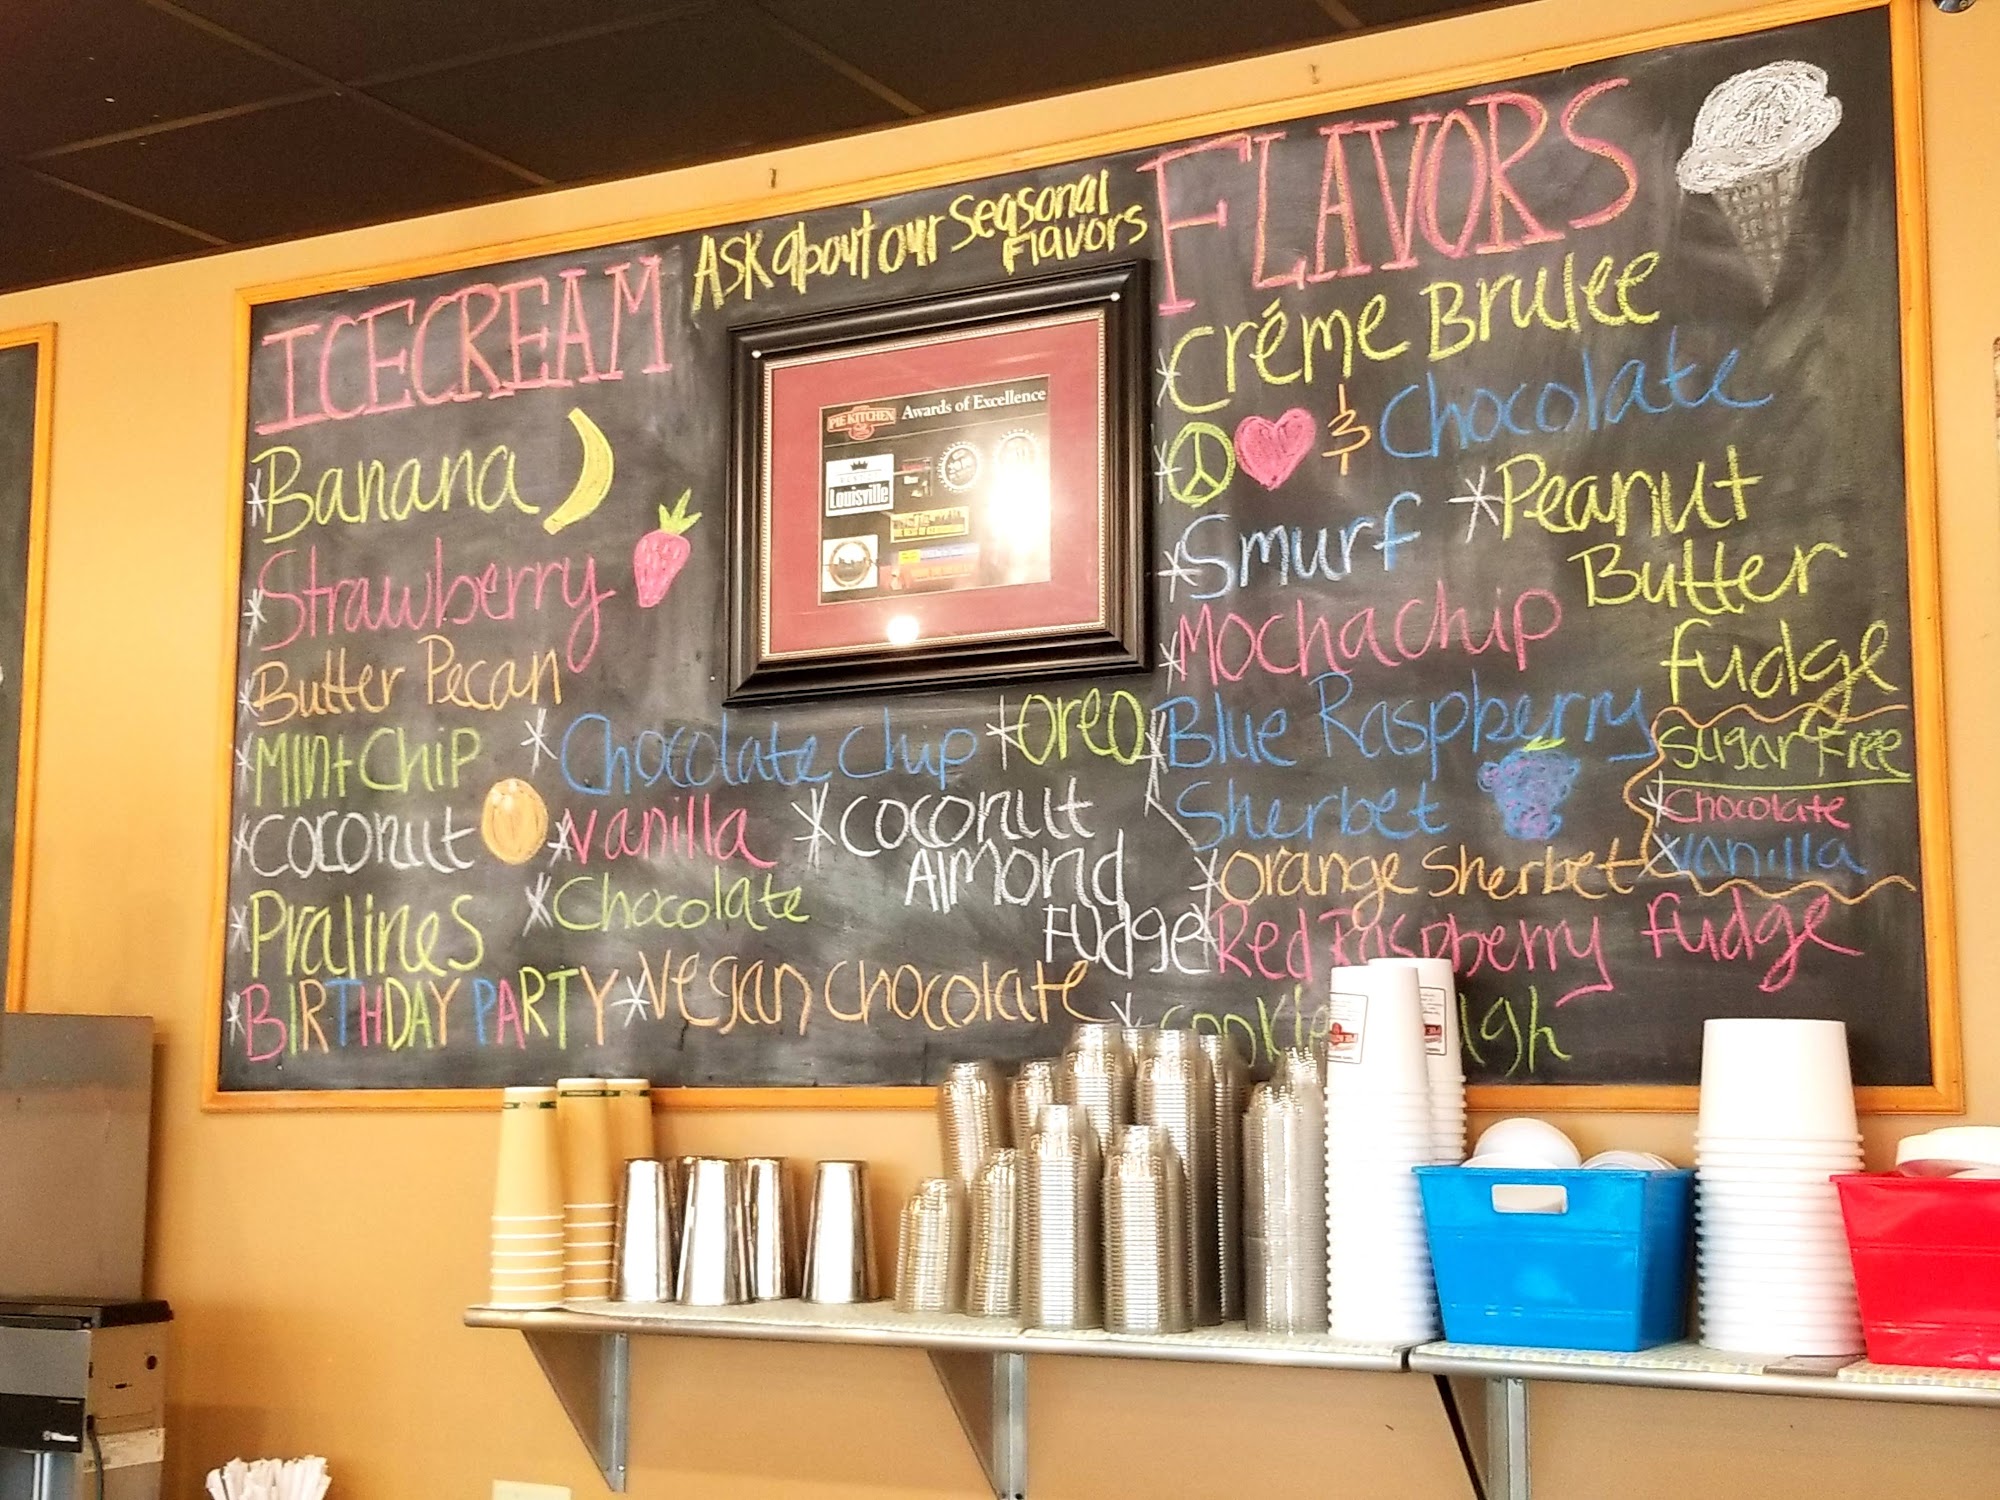 ICECREAM
Ask about our Seasonal
Flavors
FLAVORS
*Banana
*Strawberry
*Butter Pecan
*Mint Chip
*Coconut
*Pralines
*BIRTHDAY PARTY
*Chocolate Chip
*Oreo
*Vanilla
*Coconut
Almond
Fudge
*Chocolate
*Vegan Chocolate
PIE KITCHEN
Awards of Excellence
Louisville
*Créme Brulee
*☮♥& Chocolate
*Smurf
*Peanut
Butter
Fudge
*Mochachip
*Blue Raspberry
Sherbet
*Orange Sherbet
*Red Raspberry Fudge
Sugar Free
*Chocolate
*Vanilla